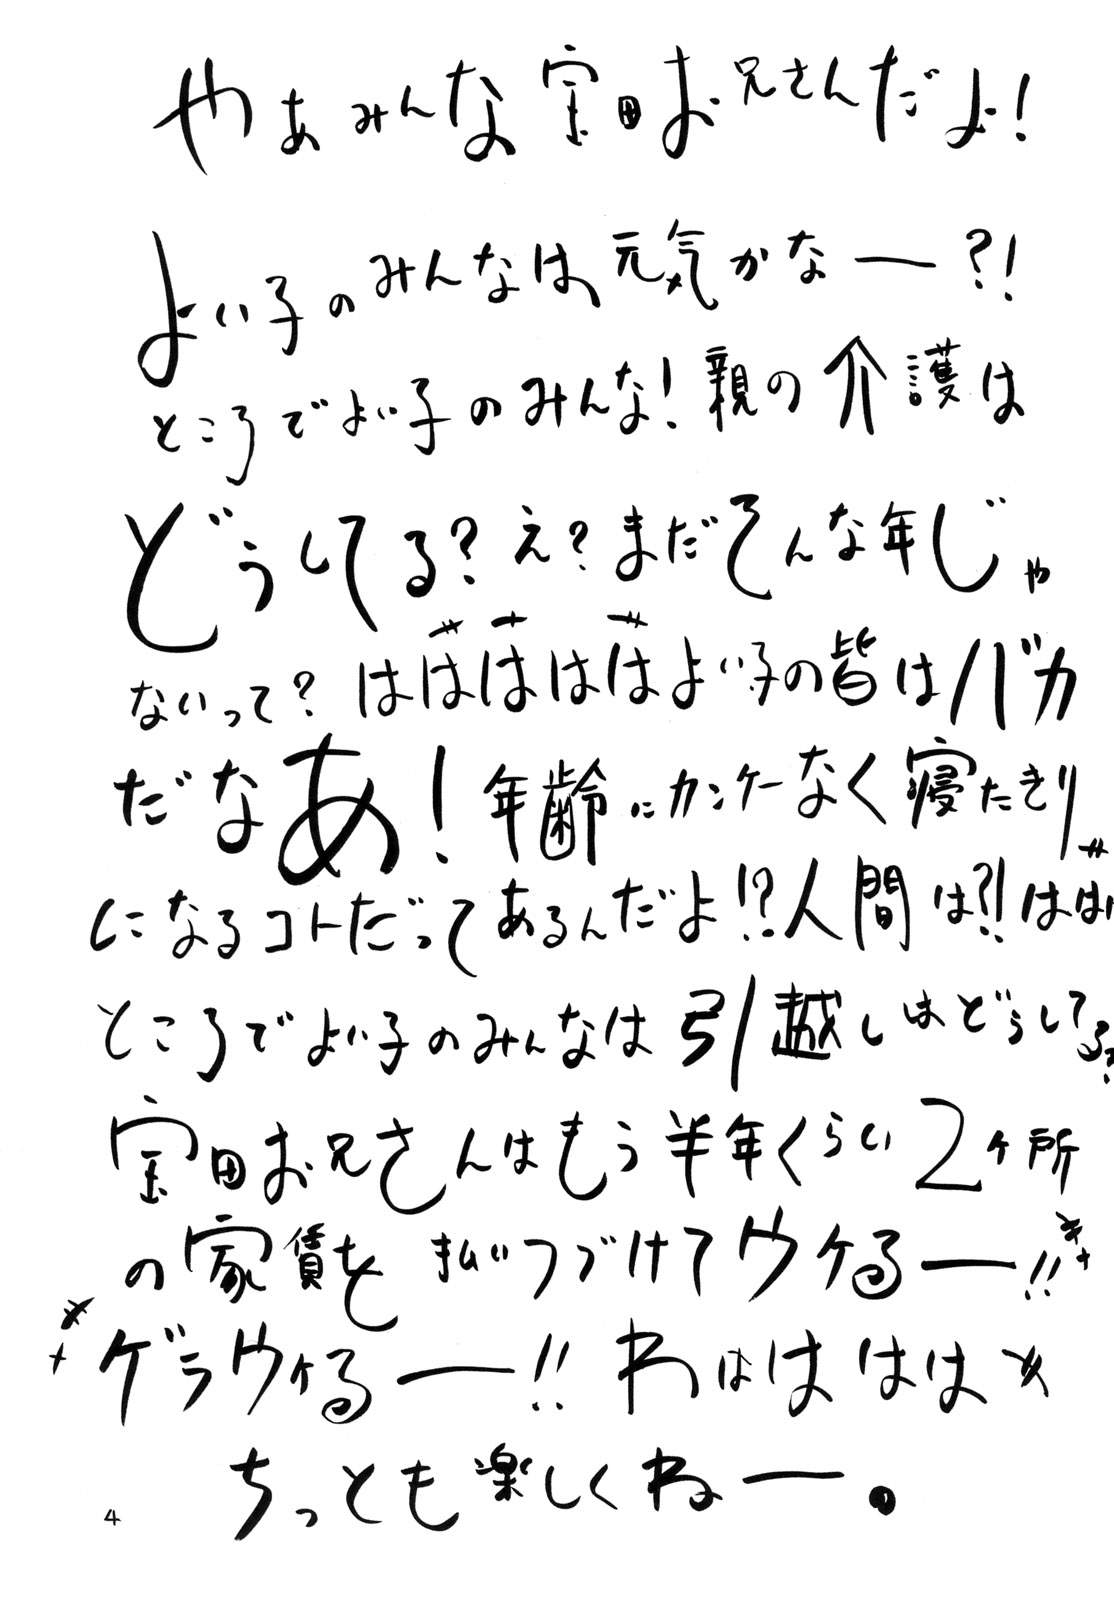 やぁみんな宝田お兄さんだよ!
よい子のみんなは元気かなー?!
ところでよい子のみんな!親の介護は
どうしてる?え?まだそんな年じゃ
ないって?はははははよい子の皆はバカ
だなあ!年齢にカンケーなく寝たきり
になるコトだってあるんだよ!?人間は?!はは
ところでよい子のみんなは引越しはどうしてる?
宝田お兄さんはもう半年くらい2ヶ所
の家賃を払いつづけてウケるー!!
ゲラウケるー!!わははははは
ちっとも楽しくねー。
4